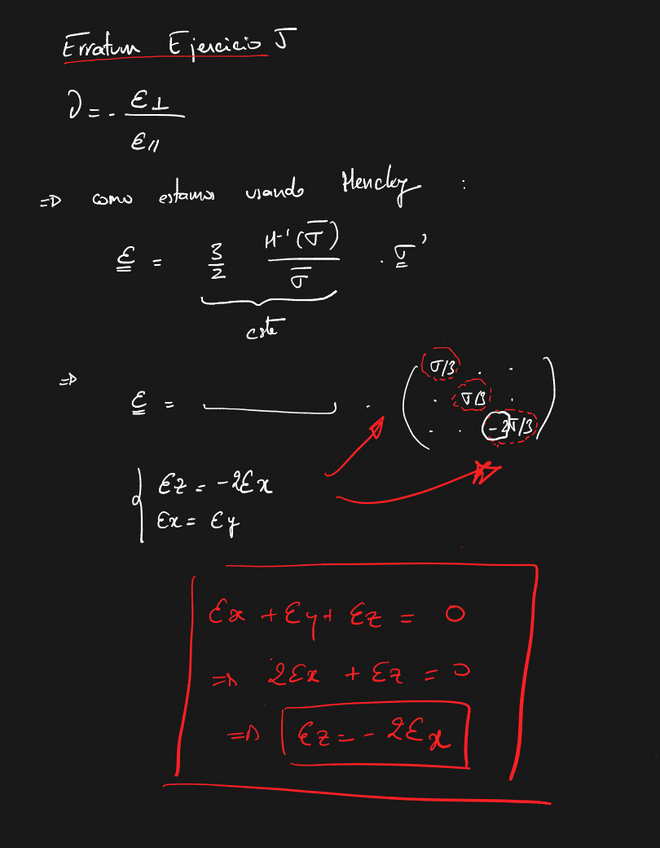 Erratum Ejercicio J
ν = - ε⊥ / ε//
⇒ como estamos usando Hencky :
ε = 3/2 H⁻¹(σ̄) / σ̄ · σ'
cste
⇒ ε = ⎵ · ( σ/3 . . 
. σ/3 .
. . -2σ/3 )
{ εz = -2εx
εx = εy
εx + εy + εz = 0
⇒ 2εx + εz = 0
⇒ εz = - 2εx